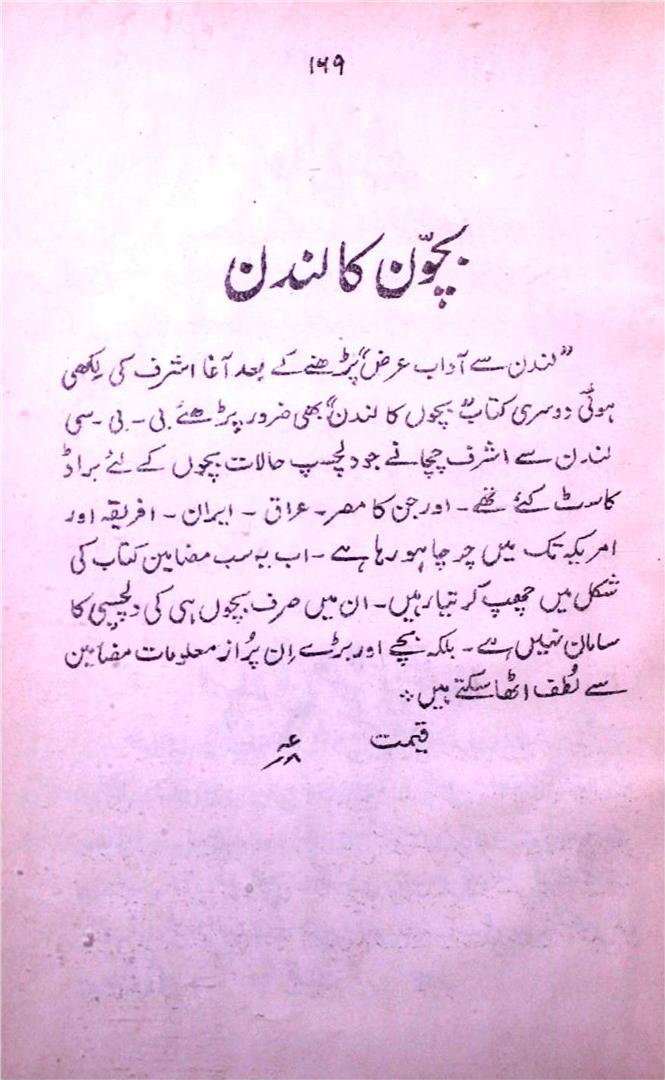 ۱۶۹
بچّوں کا لندن
”لندن سے آداب عرض“ پڑھنے کے بعد آغا اشرف کی لکھی
ہوئی دوسری کتاب ”بچوں کا لندن“ بھی ضرور پڑھئے بی۔ بی۔ سی
لندن سے اشرف چچا نے جو دلچسپ حالات بچوں کے لئے براڈ
کاسٹ کئے تھے۔ اور جن کا مصر۔ عراق۔ ایران۔ افریقہ اور
امریکہ تک میں چرچا ہو رہا ہے۔ اب یہ سب مضامین کتاب کی
شکل میں چھپ کر تیار ہیں۔ ان میں صرف بچوں ہی کی دلچسپی کا
سامان نہیں ہے۔ بلکہ بچے اور بڑے اِن پُر از معلومات مضامین
سے لُطف اٹھا سکتے ہیں
قیمت